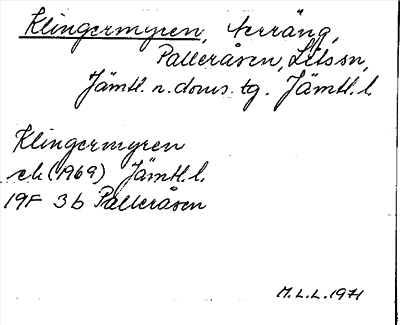 Klingermyren, terräng,
Palleråsen, Litssn,
Jämtl. n. doms. tg. Jämtl. l.
Klingermyren
ek (1969) Jämtl. l.
19F 3b Palleråsen
M. L. L. 1971